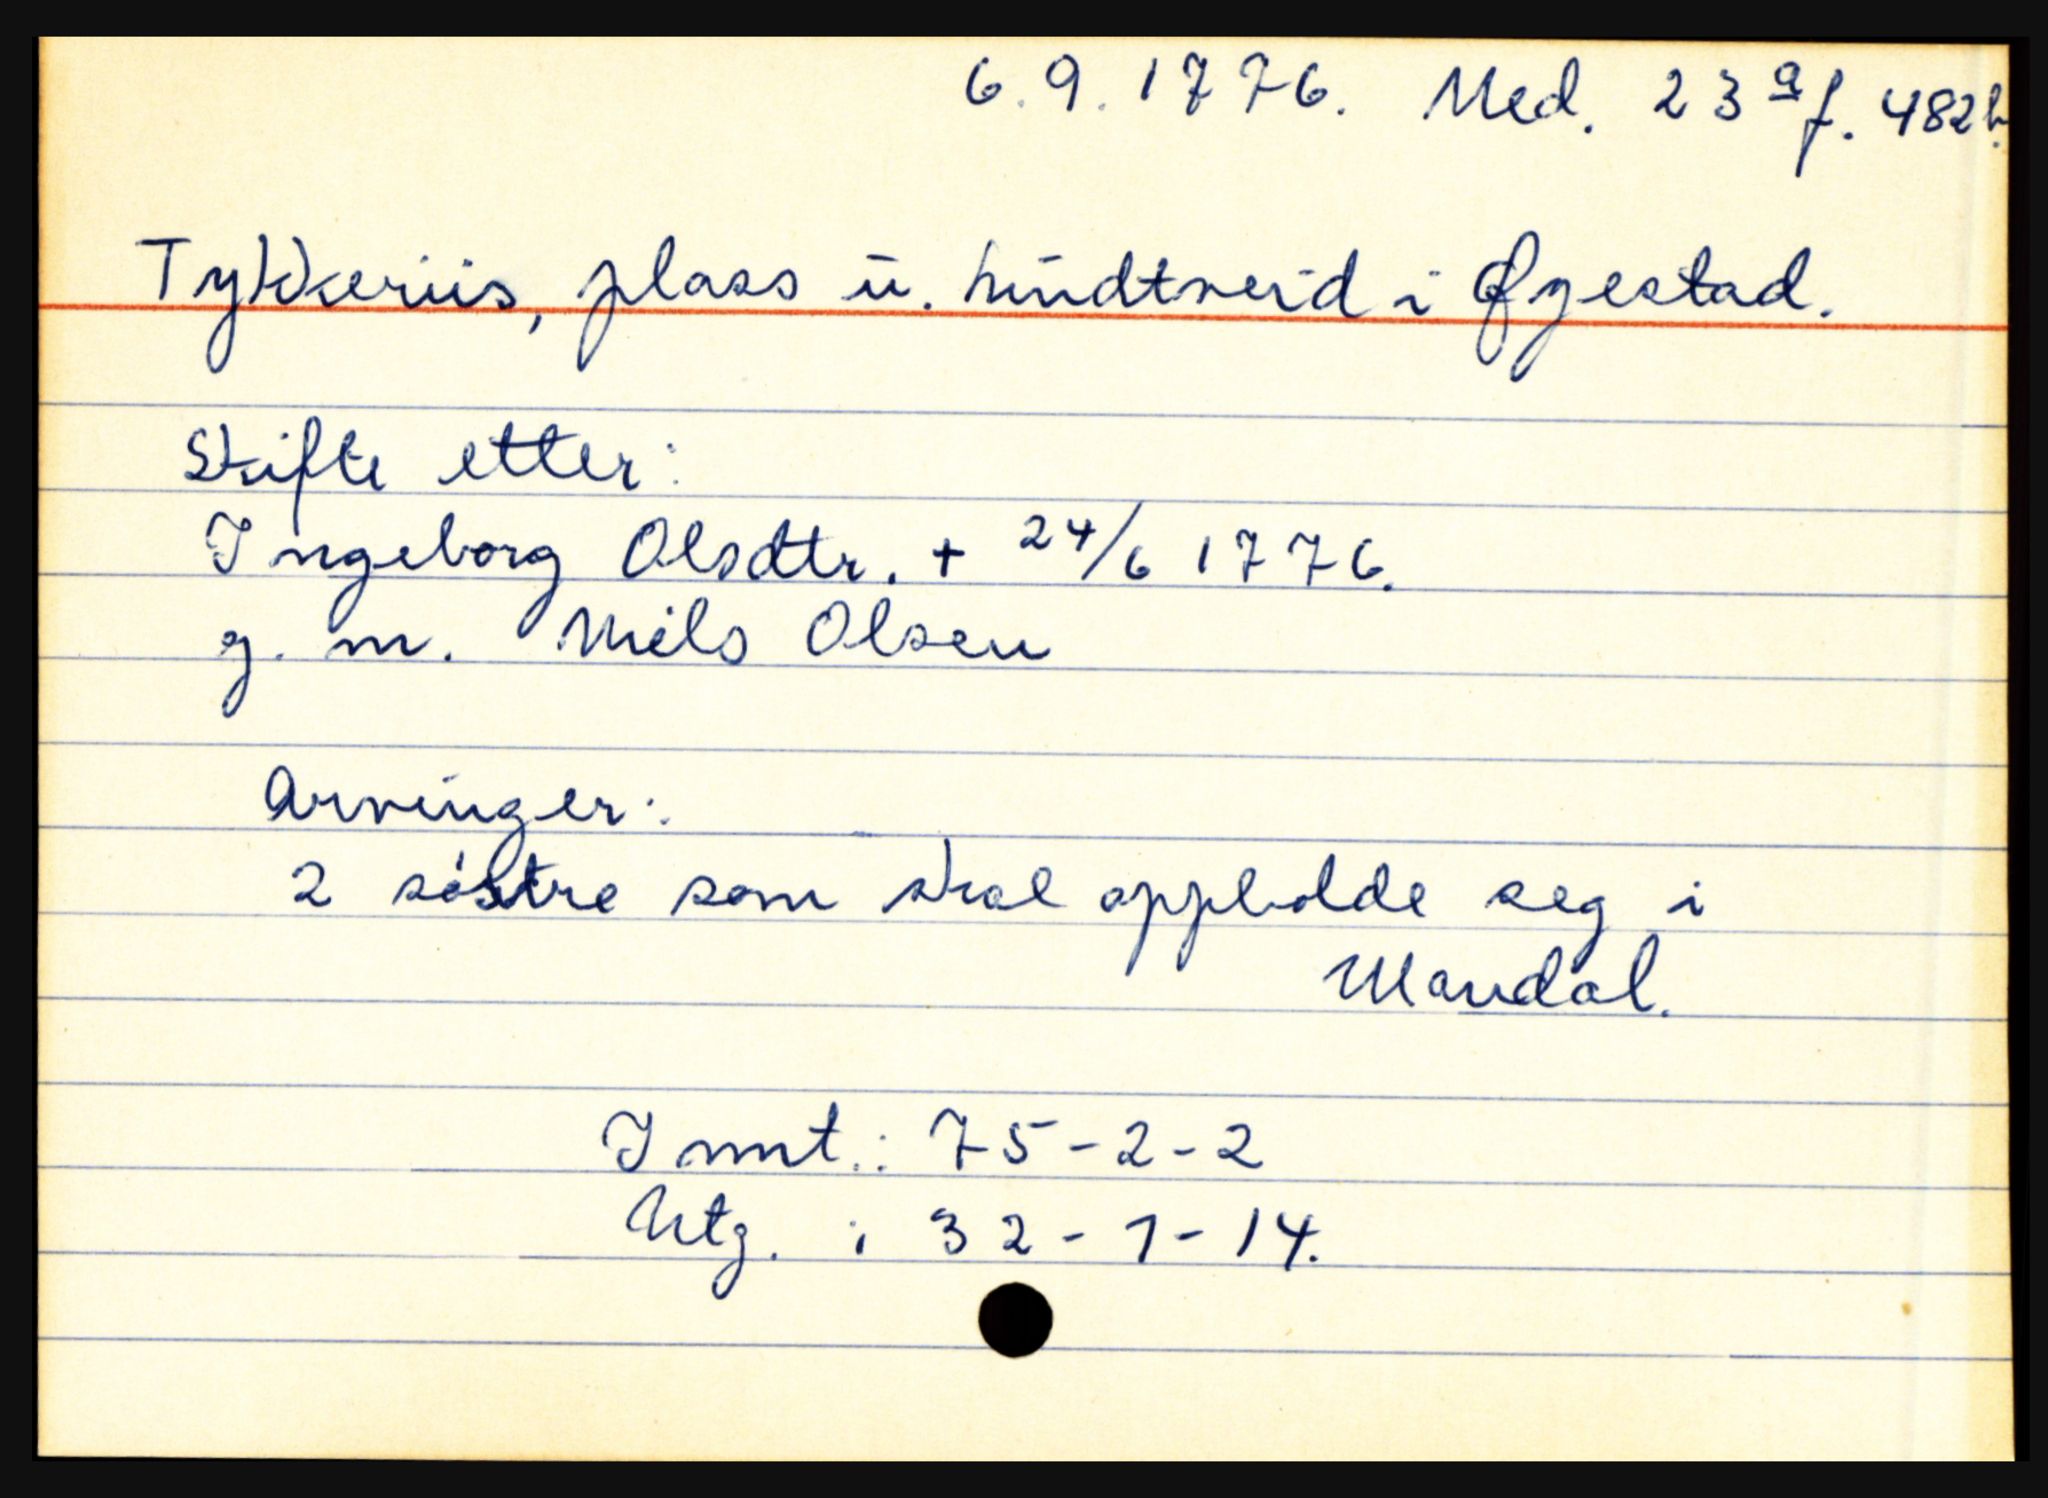 6.9.1776. Ned. 23ª f. 482b.
Tykkeriis, plass u. Lundtveid i Øyestad.
Skifte etter:
Ingeborg Olsdtr. + 24/6 1776.
g. m. Niels Olsen
Arvinger:
2 søstre som skal oppholde seg i
Mandal.
Innt.: 75-2-2
Utg. : 32-1-14.